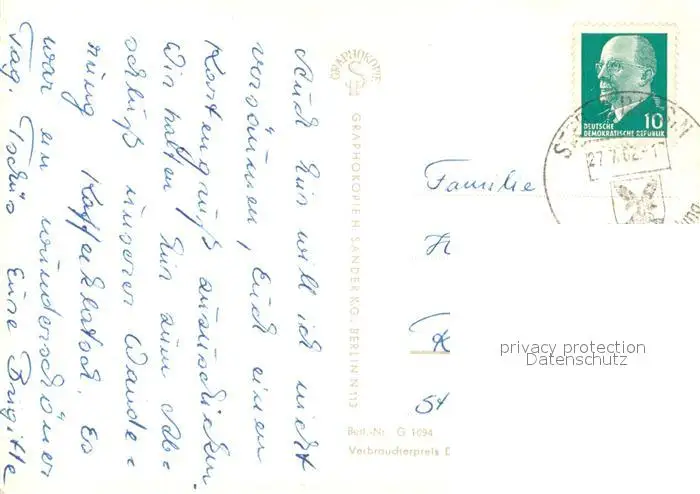 Auch hier will ich nicht
versäumen, Euch einen
Kartengruß zuzuschicken.
Wir halten hier zum Ab=
schluß unserer Wande=
rung Kaffeklatsch. Es
war ein wunderschöner
Tag. Tschüs Eure Brigitte
GRAPHOKOPIE
GRAPHOKOPIE H. SANDER KG. BERLIN N 113
Best.-Nr. G 1094
Verbraucherpreis
10
DEUTSCHE
DEMOKRATISCHE REPUBLIK
27.7.62
Familie
H
K
54
privacy protection
Datenschutz